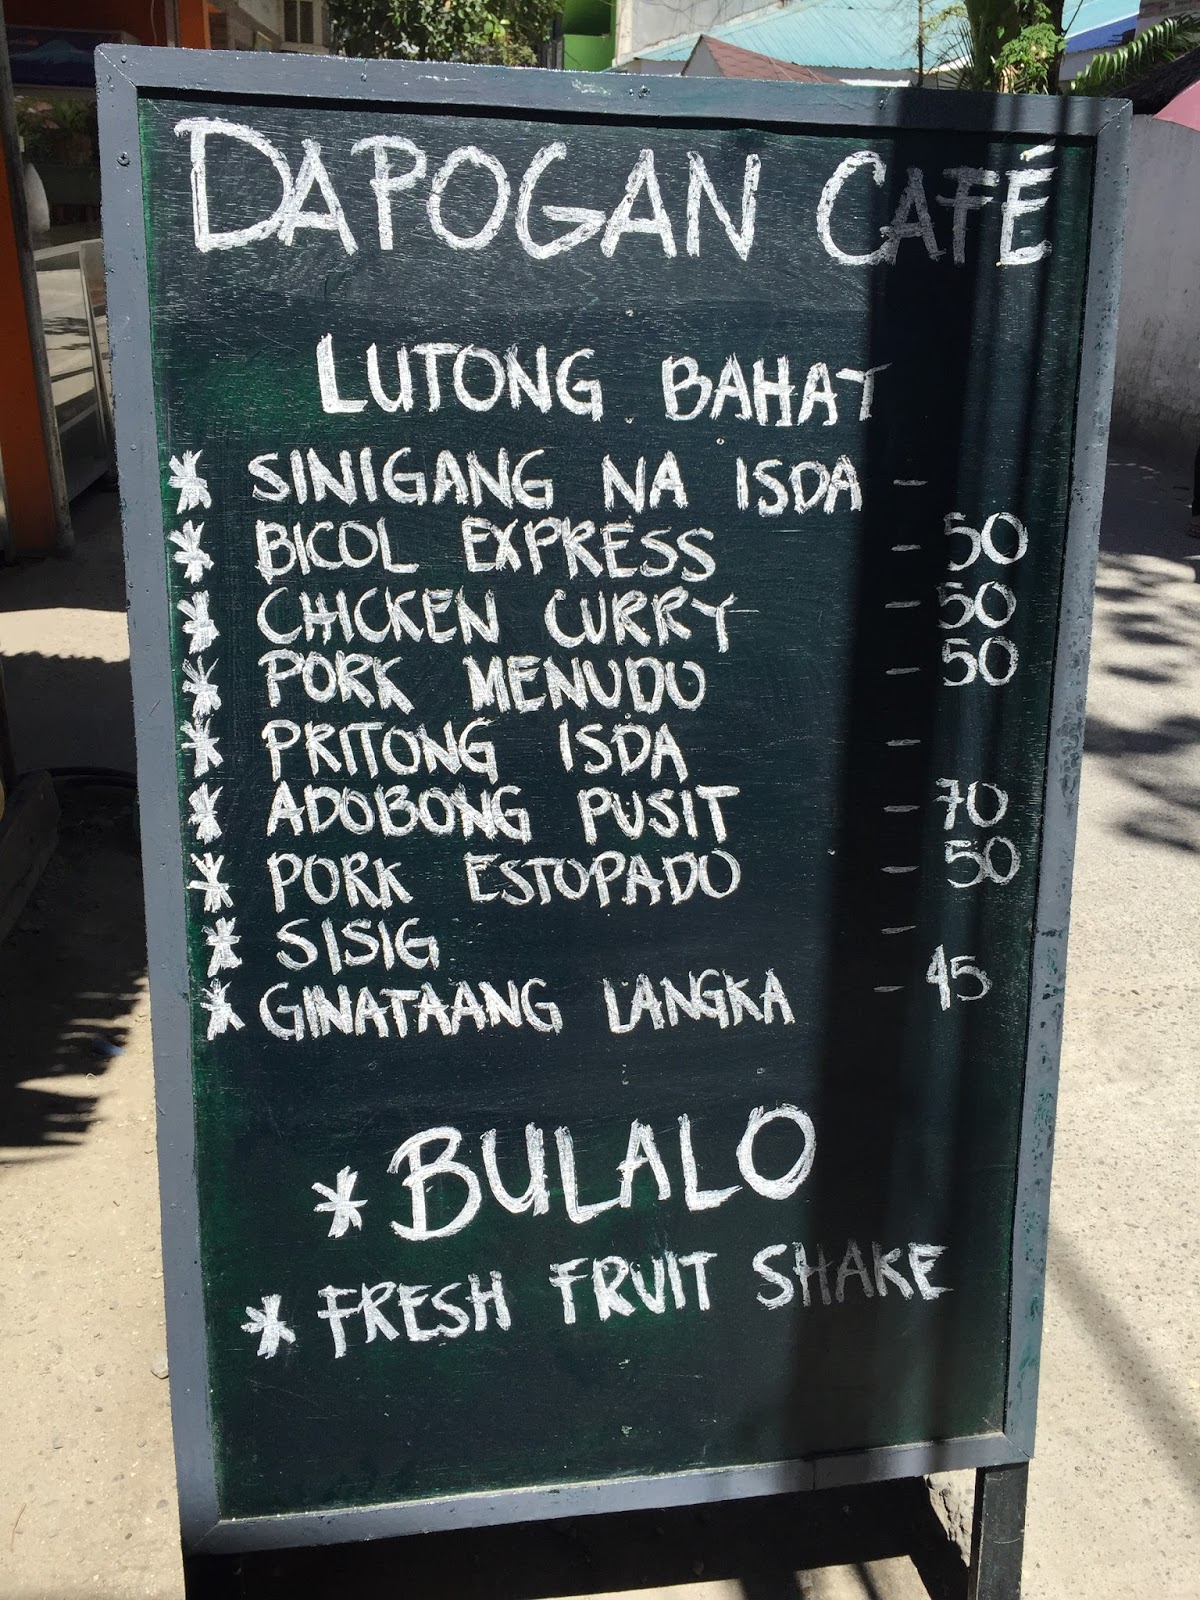 DAPOGAN CAFÉ
LUTONG BAHAY
* SINIGANG NA ISDA -
* BICOL EXPRESS - 50
* CHICKEN CURRY - 50
* PORK MENUDO - 50
* PRITONG ISDA -
* ADOBONG PUSIT - 70
* PORK ESTOPADO - 50
* SISIG -
* GINATAANG LANGKA - 45
* BULALO
* FRESH FRUIT SHAKE